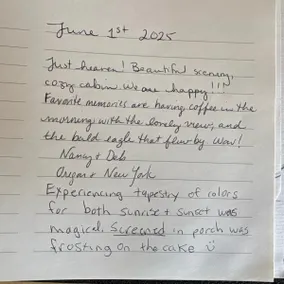 June 1st 2025
Just heaven! Beautiful scenery,
cozy cabin. We are happy!!!
Favorite memories are having coffee in the
morning with the lovely view, and
the bald eagle that flew by. Wow!
Nancy + Deb
Oregon + New York
Experiencing tapestry of colors
for both sunrise + sunset was
magical. Screened in porch was
frosting on the cake ☺